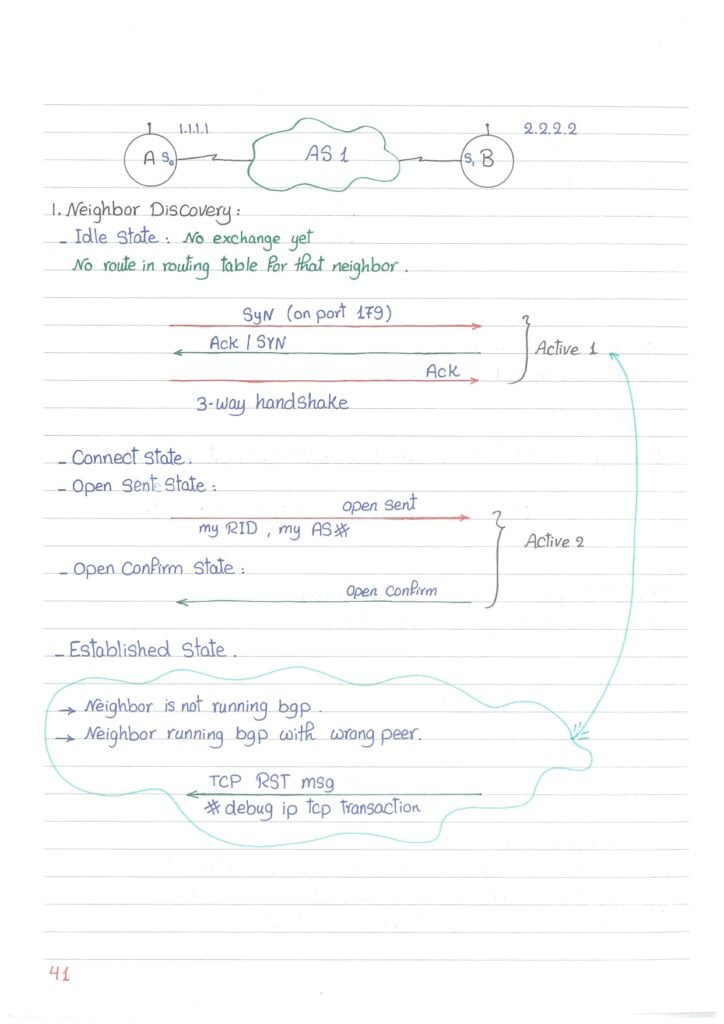 1.1.1.1
2.2.2.2
A S₀
AS 1
S₁ B
1. Neighbor Discovery :
- Idle State : No exchange yet
No route in routing table for that neighbor .
SyN (on port 179)
Ack / SYN
Active 1
Ack
3-way handshake
- Connect state .
- Open Sent State :
open sent
my RID , my AS#
Active 2
- Open Confirm State :
open confirm
- Established State .
→ Neighbor is not running bgp .
→ Neighbor running bgp with wrong peer.
TCP RST msg
# debug ip tcp transaction
41